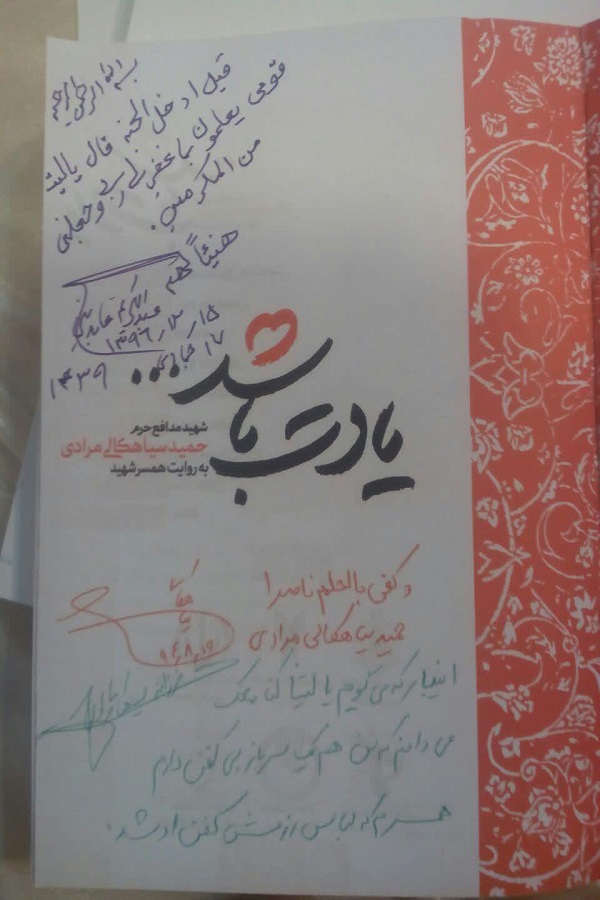 بسم الله الرحمن الرحیم
قیل ادخل الجنه قال یالیت
قومی یعلمون بما غفر لی ربی و جعلنی
من المکرمین.
هنیئاً لهم
۱۳۹۶/۲/۱۵
۱۷
۱۴۳۹
یادت باشد...
شهید مدافع حرم
حمید سیاهکالی مرادی
به روایت همسر شهید
و کفی بالحلم ناصرا
حمید سیاهکالی مرادی
اینبار که می گویم یا لیتنا کنا معک
می دانم که من هم یک سرباز بی کفن دارم
همسرم که لباس رزمش کفن او شد.